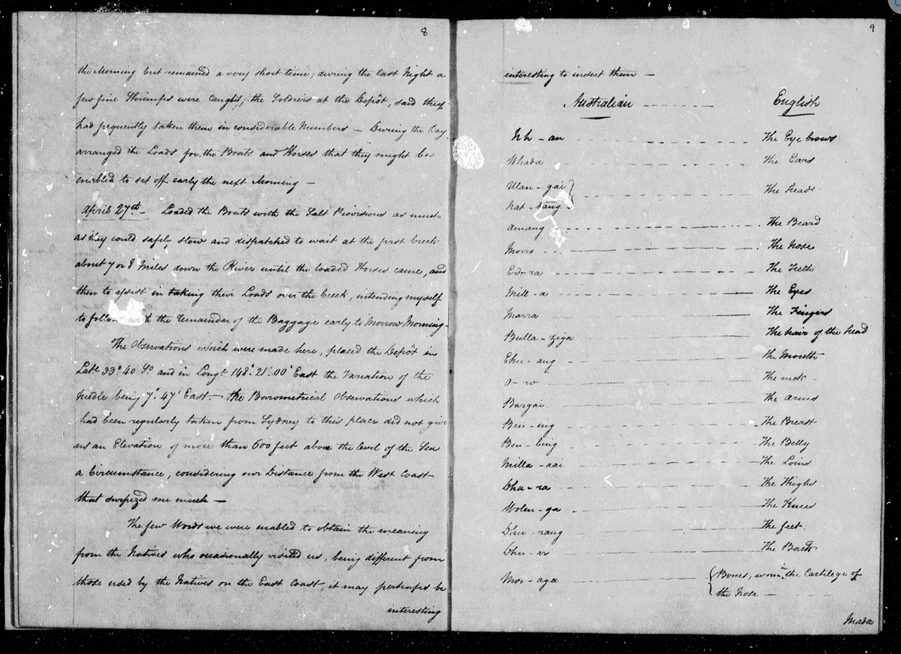 8
the Morning but remained a very short time; during the last Night a
few fine Shrimps were caught, the Soldiers at the Depôt, said they
had frequently taken them in considerable Numbers — During the Day
arranged the Loads for the Boats and Horses that they might be
enabled to set off early the next Morning —
April 27th — Loaded the Boats with the Salt Provisions as much
as they could safely stow and dispatched to wait at the first Creek
about 7 or 8 Miles down the River until the loaded Horses came, and
then to assist in taking their Loads over the Creek, intending myself
to follow the remainder of the Baggage early to Morrow Morning.
The Observations which were made here, placed the Depôt in
Latde 33° 40' So and in Longe 148° 21' 00" East the Variation of the
Needle being 7° 47' East — the Barometrical Observations which
had been regularly taken from Sydney to this place did not give
us an Elevation of more than 600 feet above the level of the Sea
a Circumstance, considering our Distance from the West Coast
that surprized me much —
The few Words we were enabled to obtain the meaning
from the Natives who occasionally visited us, being different from
those used by the Natives on the East Coast, it may perhaps be
interesting
9
interesting to insert them —
Australian English
Nh - an The Eye brows
Whada The Ears
Ulan - gai
Nat - tang } The head
Amang The Beard
Morro The Nose
Er - ra The Teeth
Mill - a The Eyes
Marra The Fingers
Bulla - yega The hair of the head
Chu - ang The Mouth
O - ro The neck
Bargai The arms
Ben - ing The Breast
Ben - bing The Belly
Milla - aar The Loins
Dha - ra The Thighs
Wolm - ga The Knees
Din - rang The feet
Dhu - er The Back
Mor - aga { Bones, worn in the Cartilege of
the Nose —
Mada